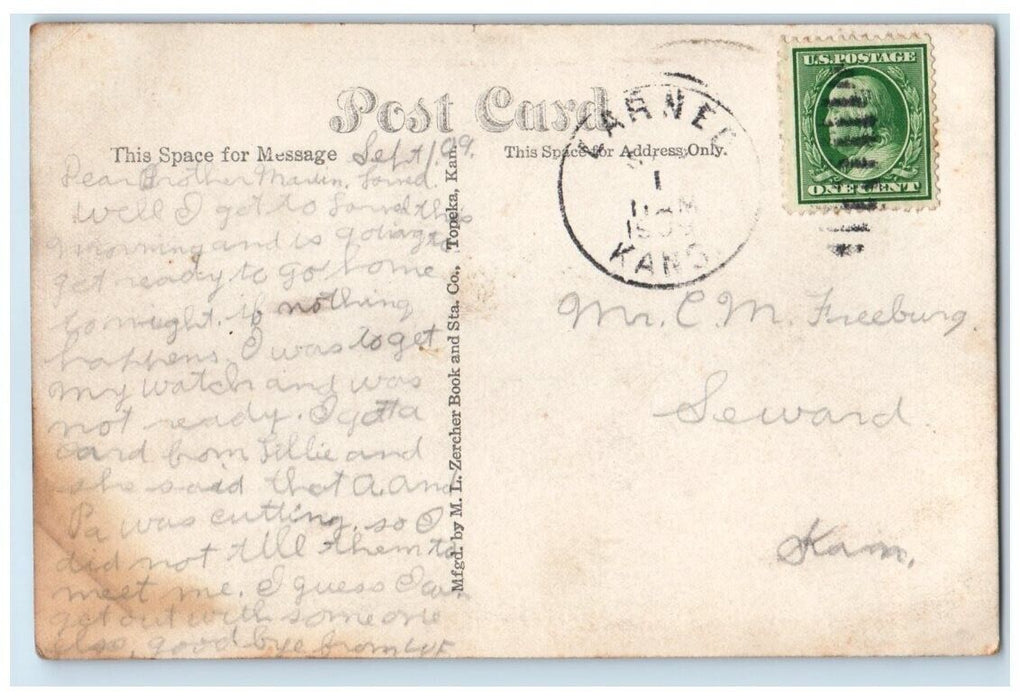 Post Card
This Space for Message
Sept 1, 09.
This Space for Address Only.
Dear Brother Marvin. Larned.
Well I got to Larned this
morning and is going to
get ready to go home
tonight. if nothing
happens. I was to get
my watch and was
not ready. I got a
card from Lillie and
she said that A. and
Pa was cutting, so I
did not tell them to
meet me. I guess I can
get out with someone
else, goodbye from
Mfgd. by M. L. Zercher Book and Sta. Co., Topeka, Kan.
LARNED
1
11 AM
1909
KANS
U.S. POSTAGE
ONE CENT
Mr. C. M. Freeburg
Seward
Kan.